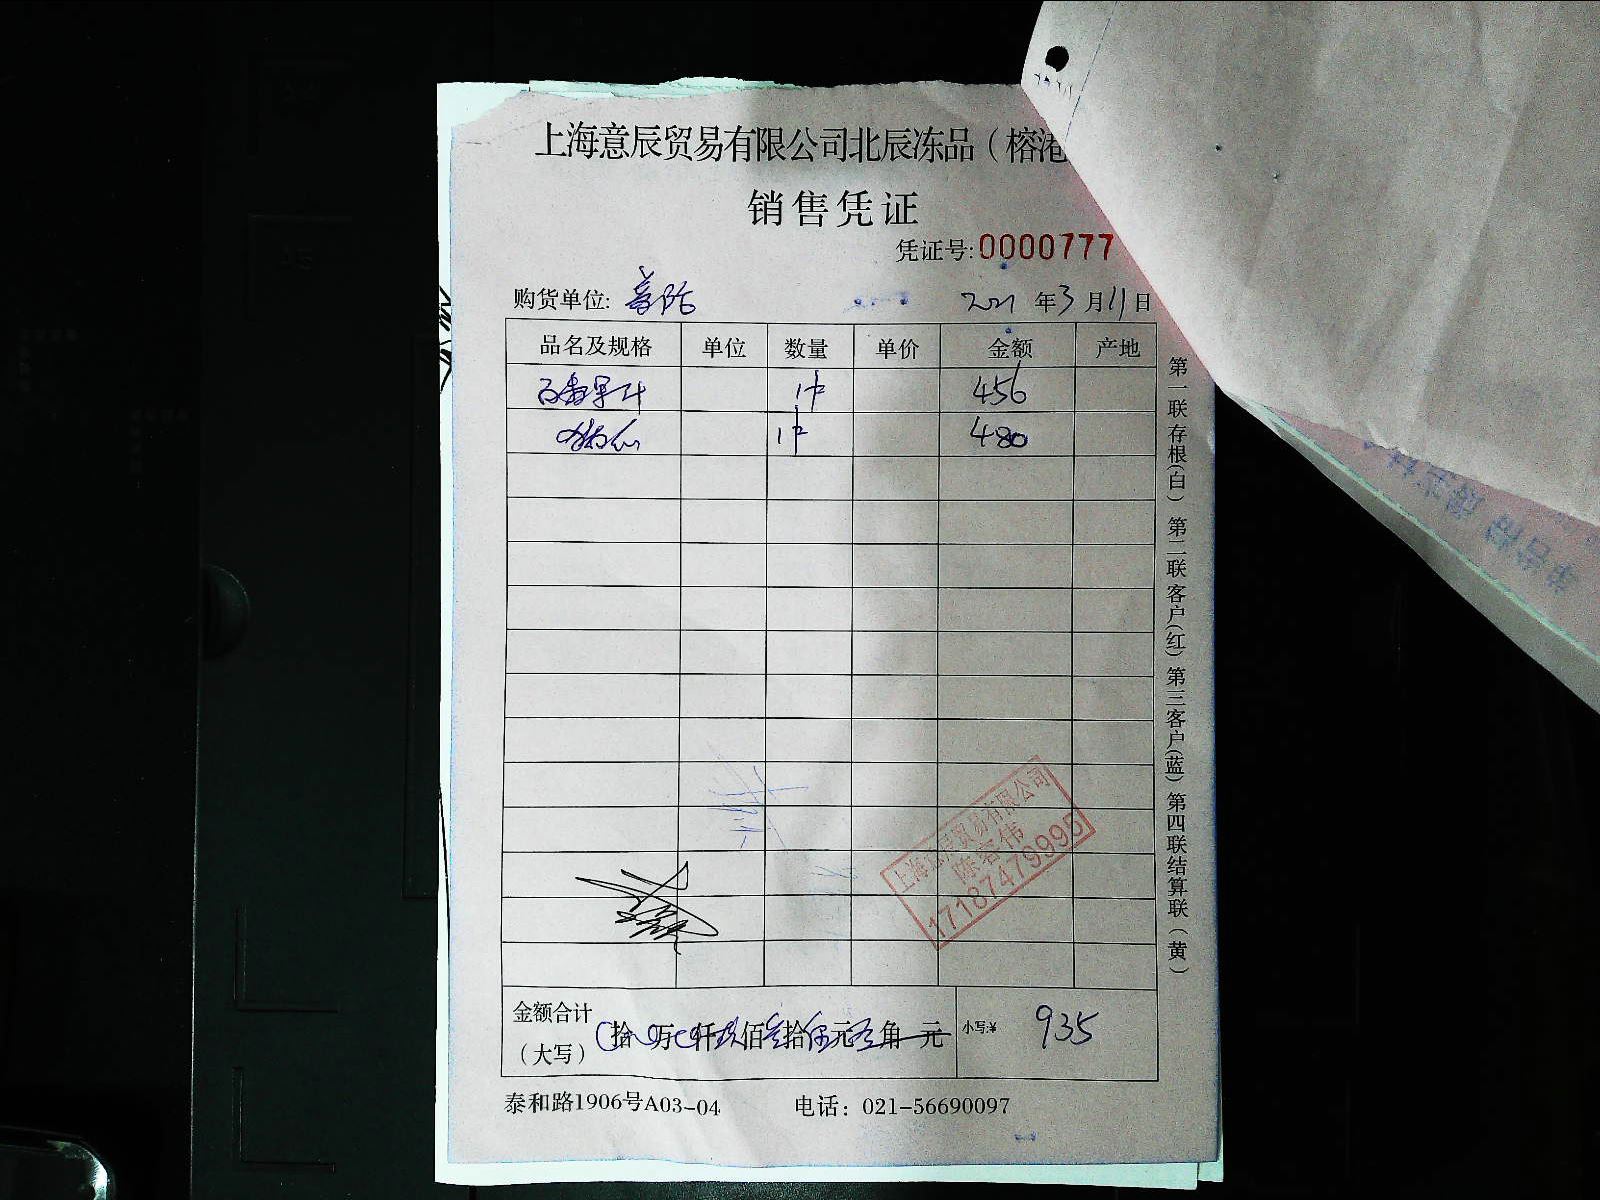 上海意辰贸易有限公司北辰冻品（榕港
销售凭证
凭证号:0000777
购货单位: 2021年3月11日
品名及规格 单位 数量 单价 金额 产地
1件 456
1件 480
上海意辰贸易有限公司
陈容伟
17187479995
金额合计
（大写） 拾 万 仟玖佰叁拾伍元 角 元 小写:¥ 935
泰和路1906号A03-04 电话：021-56690097
第一联存根(白) 第二联客户(红) 第三客户(蓝) 第四联结算联（黄）